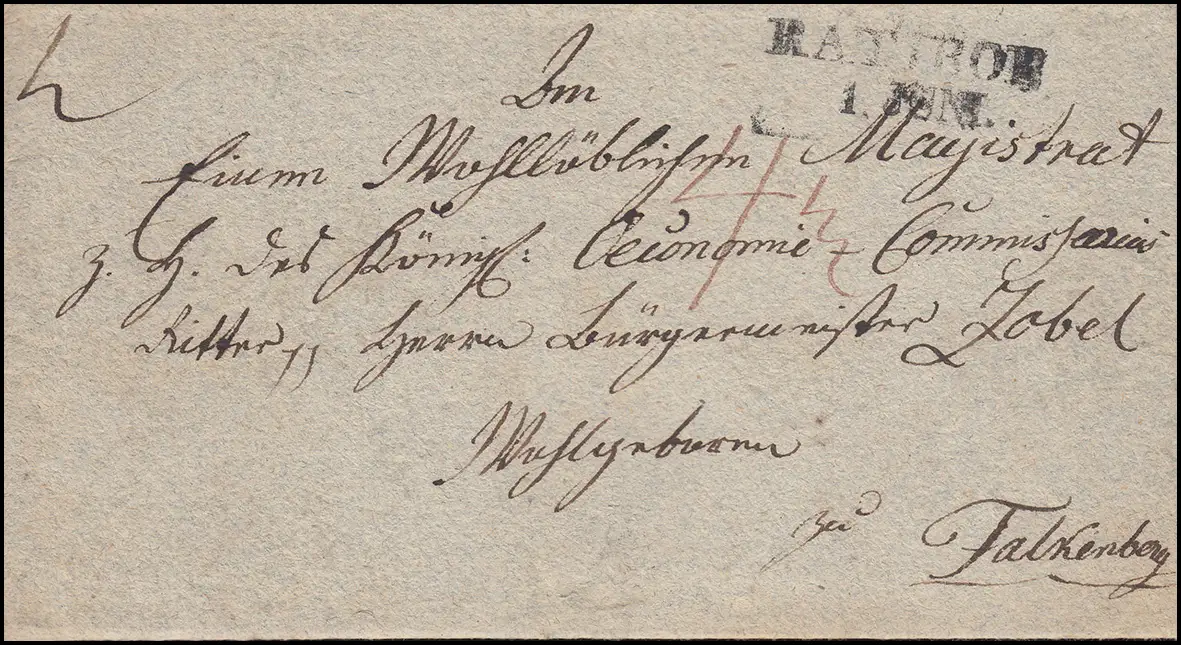 RATIBOR
1. JUNI.
An
Einen Wohllöblichen Magistrat
z. H. des Königl: Oeconomie - Commissarius
Ritter pp Herrn Bürgermeister Zobel
Wohlgeboren
zu Falkenberg